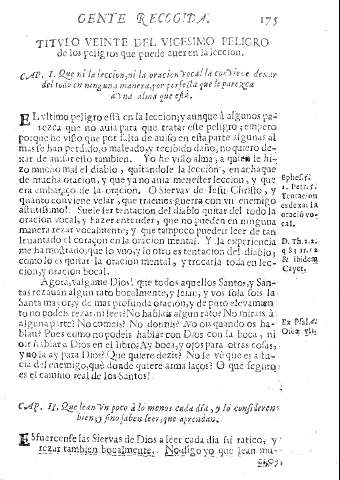 GENTE RECOGIDA. 175
TITVLO VEINTE DEL VIGESIMO PELIGRO
de los peligros que puede auer en la leccion.
CAP. I. Que ni la leccion, ni la oracion vocal la conviene dexar
del todo en ninguna manera, por perfecta que le parezca
à vna alma que està.
EL vltimo peligro està en la leccion; y aunque à algunos pa-
rezca que no auia para que tratar este peligro; empero
porque he visto que por falta de auiso en esta parte algunas al-
mas se han perdido, ò maleado, y recibido daño, no quiero de-
xar de auisar esto tambien. Yo he visto alma, à quien le hi-
zo mucho mal el diablo, quitandole la leccion, en achaque
de mucha oracion, y que ya no auia menester leccion, y que
era embargo de la oracion. O Siervas de Jesu-Christo, y
quanto conviene velar, que traemos guerra con vn enemigo
astutissimo! Suele ser tentacion del diablo quitar del todo la
oracion vocal, y hazer entender, que no pueden en ninguna
manera rezar vocalmente; y que tampoco pueden leer de tan
levantado el coraçon en la oracion mental. Y la experiencia
me ha mostrado, que lo vno, y lo otro es tentacion del diablo;
como lo es quitar la oracion mental, y trocarla toda en lec-
cion, y oracion bocal.
Agora, valgame Dios! que todos aquellos Santos, y San-
tas rezauan algun rato bocalmente, y leian; y vos sola sois la
Santa mayor, y de mas profunda oracion, y de puro elevamien-
to no podeis rezar, ni leer? No hablais algun rato? No mirais à
alguna parte? No comeis? No dormis? No ois quando os ha-
blan? Pues como no podeis hablar con Dios con la boca, ni
oir hablar à Dios en el libro? Ay boca, y ojos para otras cosas,
y no la ay para Dios? Que quiere dezir? No se vè que es astu-
cia del enemigo, què donde quiere arma laços? O que seguro
es el camino real de los Santos!
Ephes. 5.
1. Petr. 5.
Tentacion
es dexar la
oració vo-
cal.
D. Th. 2. 2.
q. 83. art. 12
& ibidem
Cayet.
CAP. II. Que lean vn poco à lo menos cada dia, y lo consideren
bien, y sino saben leer, que aprendan.
ESfuercense las Siervas de Dios à leer cada dia su ratico, y
rezar tambien bocalmente. No digo yo que lean mu-